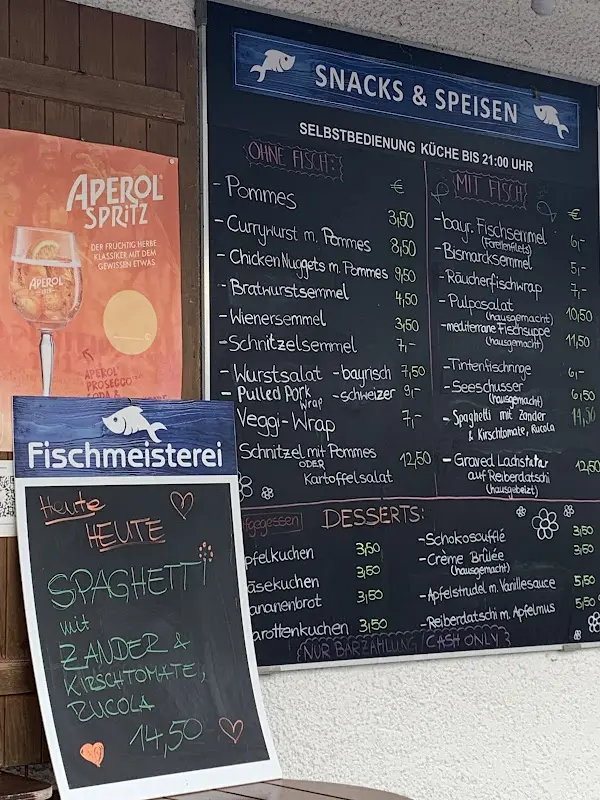 SNACKS & SPEISEN
SELBSTBEDIENUNG KÜCHE BIS 21:00 UHR
OHNE FISCH:
€
- Pommes 3,50
- Currywurst m. Pommes 8,50
- Chicken Nuggets m. Pommes 9,50
- Bratwurstsemmel 4,50
- Wienersemmel 3,50
- Schnitzelsemmel 7,-
- Wurstsalat - bayrisch 7,50
- schweizer 9,-
- Pulled Pork
Wrap
Veggi-Wrap 7,-
Schnitzel mit Pommes 12,50
ODER
Kartoffelsalat
MIT FISCH
€
- bayr. Fischsemmel 6,-
(Forellenfilets)
- Bismarcksemmel 5,-
- Räucherfischwrap 7,-
- Pulposalat 10,50
(hausgemacht)
- mediterrane Fischsuppe 11,50
(hausgemacht)
- Tintenfischringe 6,-
- Seeschusser 6,50
(hausgemacht)
- Spaghetti mit Zander 14,50
& Kirschtomate, Rucola
- Graved Lachstatar 12,50
auf Reiberdatschi
(hausgebeizt)
fgegessen
DESSERTS:
pfelkuchen 3,50
äsekuchen 3,50
ananenbrot 3,50
arottenkuchen 3,50
- Schokosoufflé 3,50
- Crème Brûlée 3,50
(hausgemacht)
- Apfelstrudel m. Vanillesauce 5,50
- Reiberdatschi m. Apfelmus 5,50
NUR BARZAHLUNG / CASH ONLY
APEROL
SPRITZ
DER FRUCHTIG HERBE
KLASSIKER MIT DEM
GEWISSEN ETWAS
APEROL
APEROL
PROSECCO
SODA &
Fischmeisterei
Heute
HEUTE
SPAGHETTI
mit
ZANDER &
KIRSCHTOMATE,
RUCOLA
14,50